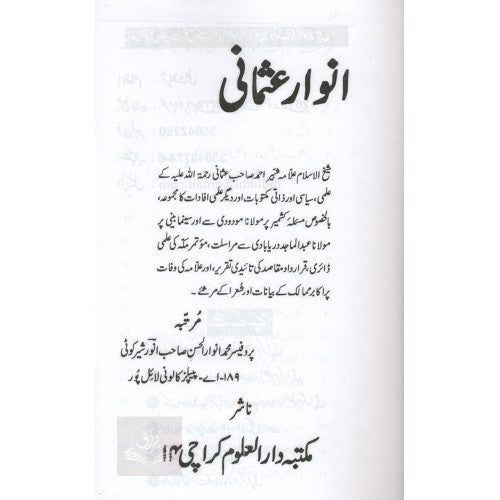 انوار عثمانی
شیخ الاسلام علامہ شبیر احمد صاحب عثمانی رحمۃ اللہ علیہ کے
علمی، سیاسی اور ذاتی مکتوبات اور دیگر علمی افادات کا مجموعہ،
بالخصوص مسئلہ کشمیر پر مولانا مودودی سے اور سینما بینی پر
مولانا عبدالماجد دریابادی سے مراسلت، مؤتمر مکہ کی علمی
ڈائری، قرارداد مقاصد کی تائیدی تقریر، اور علامہ کی وفات
پر اکابر ممالک کے بیانات اور شعرا کے مرثیے۔
مرتبہ
پروفیسر محمد انوار الحسن صاحب انور شیرکوٹی
۱۸۹-اے-پیپلز کالونی لائل پور
ناشر
مکتبہ دارالعلوم کراچی ۱۴